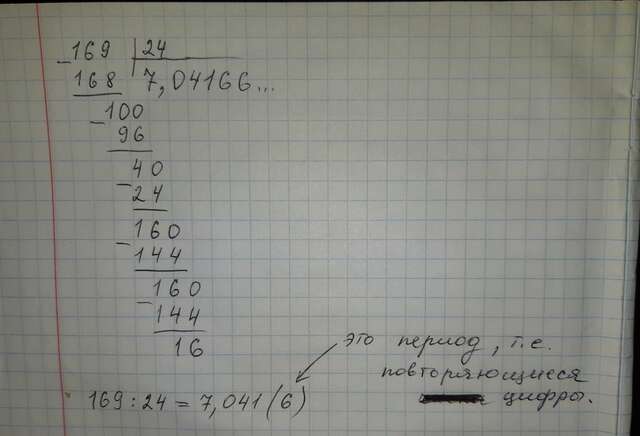 169 | 24
168 7,04166...
100
96
40
24
160
144
160
144
16
169 : 24 = 7,041(6)
это период, т.е.
повторяющиеся
цифры.